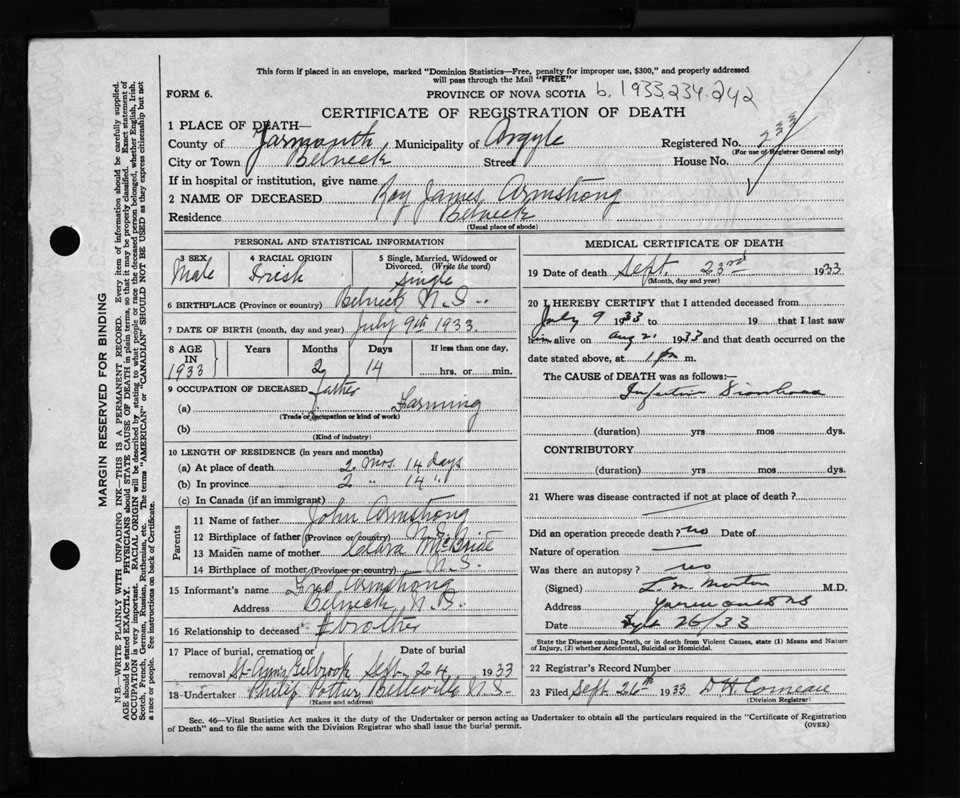 This form if placed in an envelope, marked "Dominion Statistics—Free, penalty for improper use, $300," and properly addressed
will pass through the Mail "FREE"
FORM 6. PROVINCE OF NOVA SCOTIA b. 1933.234.242
CERTIFICATE OF REGISTRATION OF DEATH
1 PLACE OF DEATH—
County of Yarmouth Municipality of Argyle Registered No.
(For use of Registrar General only)
City or Town Belneck Street House No.
If in hospital or institution, give name
2 NAME OF DECEASED Roy James Armstrong
Residence Belneck
(Usual place of abode)
PERSONAL AND STATISTICAL INFORMATION
3 SEX 4 RACIAL ORIGIN 5 Single, Married, Widowed or
Divorced. (Write the word)
Male Irish Single
6 BIRTHPLACE (Province or country) Belneck N.S.
7 DATE OF BIRTH (month, day and year) July 9th 1933.
8 AGE Years Months Days If less than one day,
IN
1933 2 14 hrs. or min.
9 OCCUPATION OF DECEASED father
(a) Farming
(Trade or occupation or kind of work)
(b)
(Kind of industry)
10 LENGTH OF RESIDENCE (in years and months)
(a) At place of death 2 mos. 14 days
(b) In province 2 " 14 "
(c) In Canada (if an immigrant)
Parents
11 Name of father John Armstrong
12 Birthplace of father (Province or country) N.S.
13 Maiden name of mother Clara McBride
14 Birthplace of mother (Province or country) N.S.
15 Informant's name Fred Armstrong
Address Belneck N.S.
16 Relationship to deceased brother
17 Place of burial, cremation or Date of burial
removal St. Anns Eelbrook Sept. 24 1933
18 Undertaker Philip Pothier Belleville N.S.
(Name and address)
MEDICAL CERTIFICATE OF DEATH
19 Date of death Sept. 23rd 1933
(Month, day and year)
20 I HEREBY CERTIFY that I attended deceased from
July 9 1933 to 19 that I last saw
him alive on Aug 2, 1933 and that death occurred on the
date stated above, at 1 pm m.
The CAUSE of DEATH was as follows:—
Infective Diarrhoea
(duration) yrs mos dys.
CONTRIBUTORY
(duration) yrs mos dys.
21 Where was disease contracted if not at place of death?
Did an operation precede death? no Date of
Nature of operation
Was there an autopsy? no
(Signed) L. M. Morton M.D.
Address Yarmouth NS
Date Sept 26/33
State the Disease causing Death, or in death from Violent Causes, state (1) Means and Nature
of Injury, (2) whether Accidental, Suicidal or Homicidal.
22 Registrar's Record Number
23 Filed Sept. 26th 1933 D H Comeau
(Division Registrar)
Sec. 46—Vital Statistics Act makes it the duty of the Undertaker or person acting as Undertaker to obtain all the particulars required in the "Certificate of Registration
of Death" and to file the same with the Division Registrar who shall issue the burial permit.
(OVER)
MARGIN RESERVED FOR BINDING
N.B.—WRITE PLAINLY WITH UNFADING INK—THIS IS A PERMANENT RECORD. Every item of information should be carefully supplied.
AGE should be stated EXACTLY. PHYSICIANS should STATE CAUSE OF DEATH in plain terms, so that it may be properly classified. Exact statement of
OCCUPATION is very important. RACIAL ORIGIN will be described by stating to what people or race the deceased person belonged, whether English, Irish,
Scotch, French, German, Russian, Ruthenian, etc. The terms "AMERICAN" or "CANADIAN" SHOULD NOT BE USED as they express citizenship but not
a race or people. See instructions on back of Certificate.